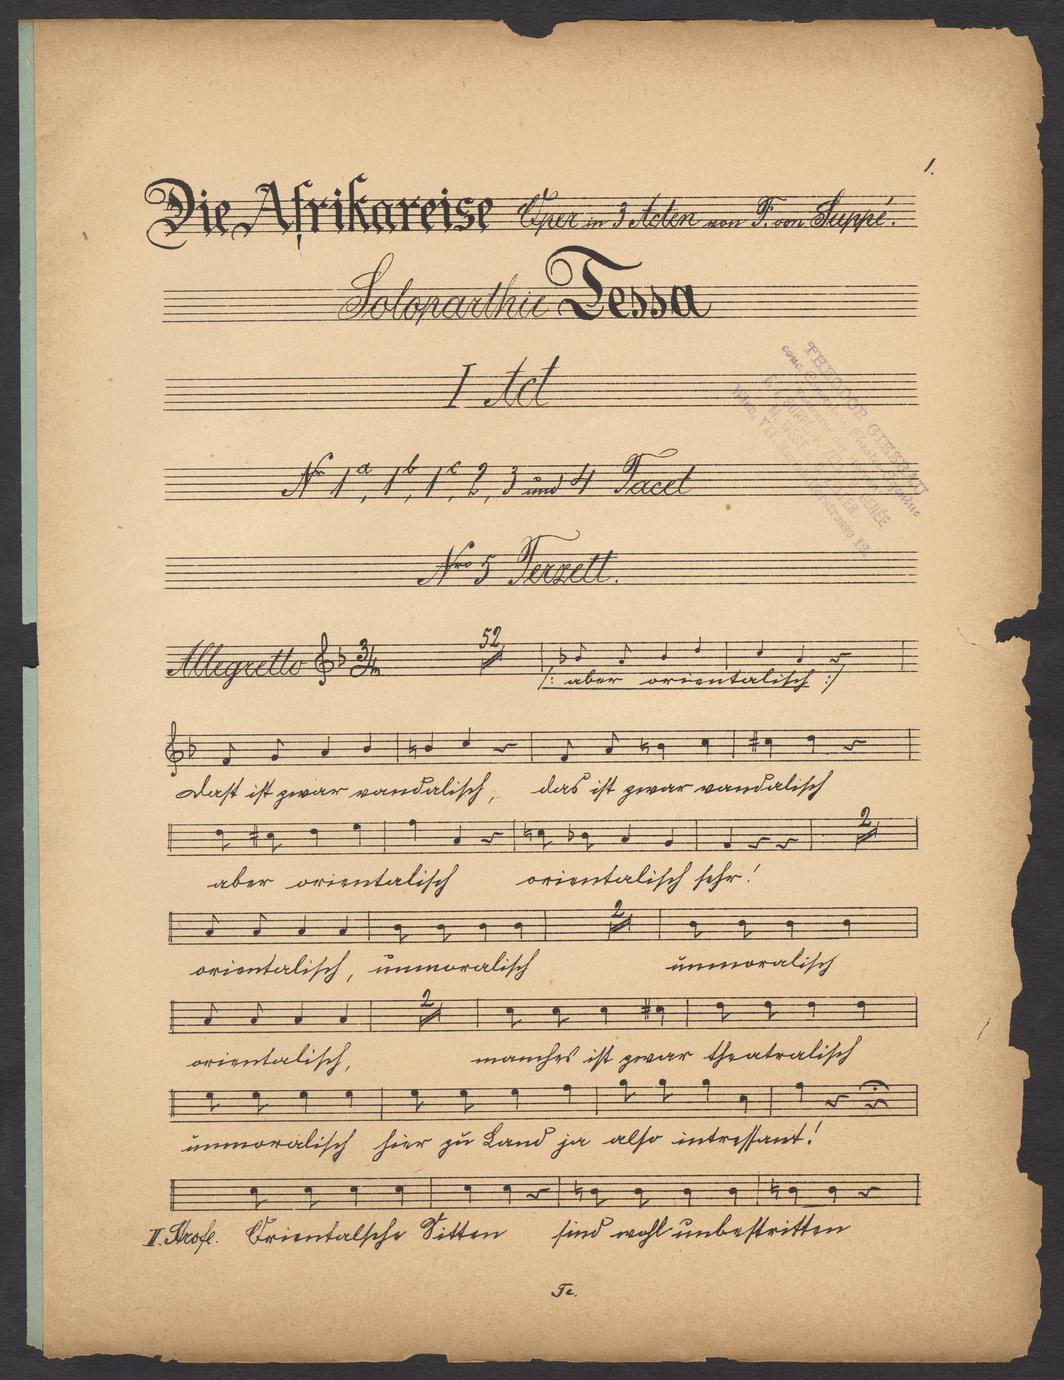 1.
Die Afrikareise Oper in 3 Acten von F. von Suppé.
Soloparthie Tessa
I Act
Nr 1a, 1b, 1c, 2, 3 und 4 Tacet
Nro 5 Terzett.
THEODOR
Allegretto 3/4 52
/: aber orientalisch :/
Dast ist zwar vandalisch, das ist zwar vandalisch
2
aber orientalisch orientalisch sehr!
2
orientalisch, unmoralisch unmoralisch
2
orientalisch, manches ist zwar theatralisch
unmoralisch hier zu Land ja also intressant!
II. Strofe. Orientalsche Sitten sind wohl unbestritten
Te.